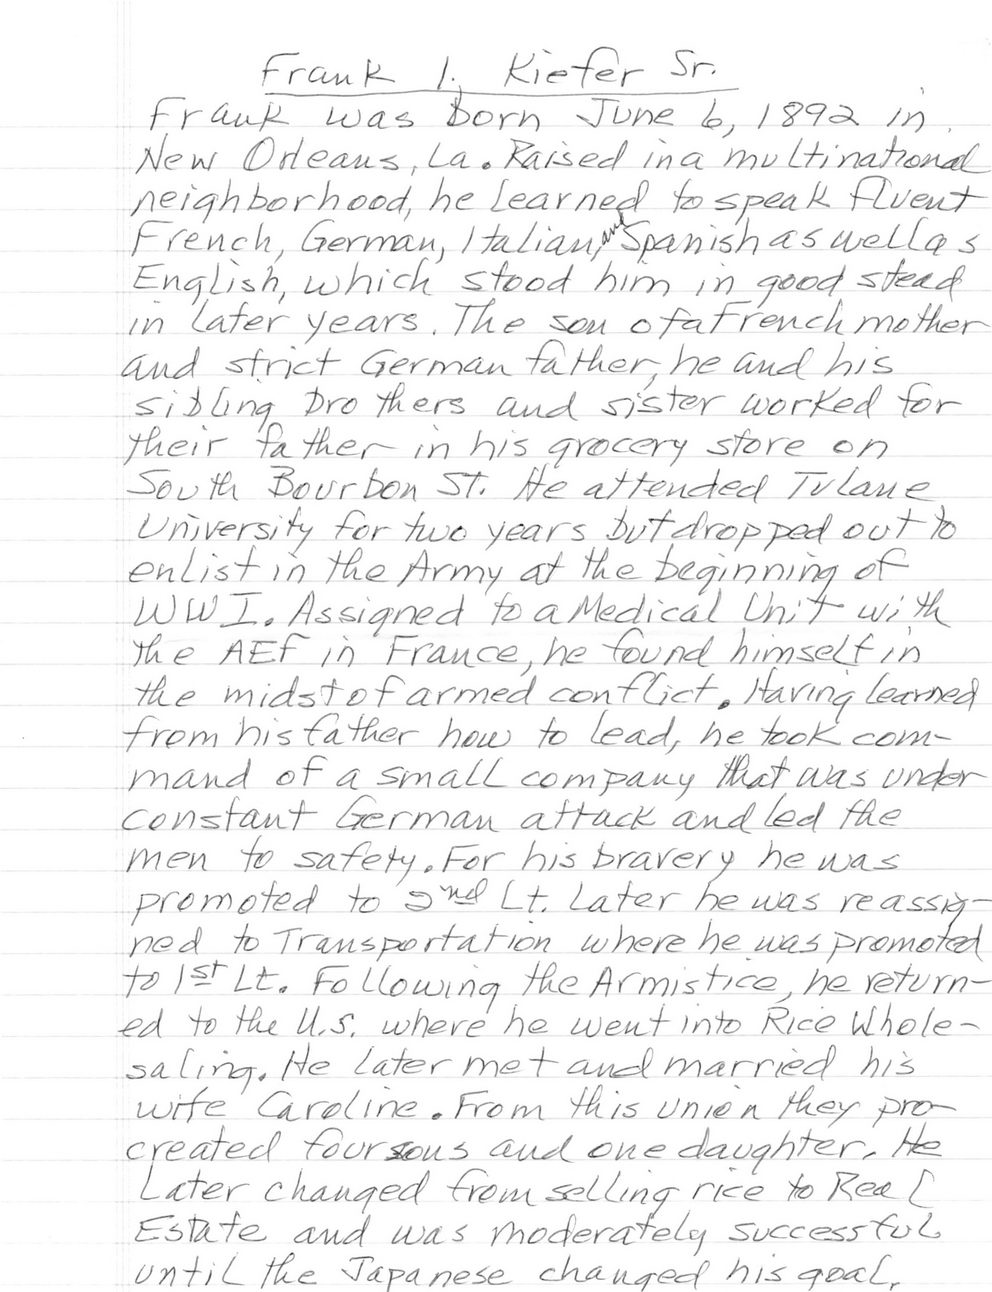 Frank I. Kiefer Sr.
Frank was born June 6, 1892 in
New Orleans, La. Raised in a multinational
neighborhood, he learned to speak fluent
French, German, Italian, and Spanish as well as
English, which stood him in good stead
in later years. The son of a French mother
and strict German father, he and his
sibling brothers and sister worked for
their father in his grocery store on
South Bourbon St. He attended Tulane
University for two years but dropped out to
enlist in the Army at the beginning of
WWI. Assigned to a Medical Unit with
the AEF in France, he found himself in
the midst of armed conflict. Having learned
from his father how to lead, he took com-
mand of a small company that was under
constant German attack and led the
men to safety. For his bravery he was
promoted to 2nd Lt. Later he was reassig-
ned to Transportation where he was promoted
to 1st Lt. Following the Armistice, he return-
ed to the U.S. where he went into Rice Whole-
saling. He later met and married his
wife Caroline. From this union they pro-
created four sons and one daughter. He
later changed from selling rice to Real
Estate and was moderately successful
until the Japanese changed his goal.